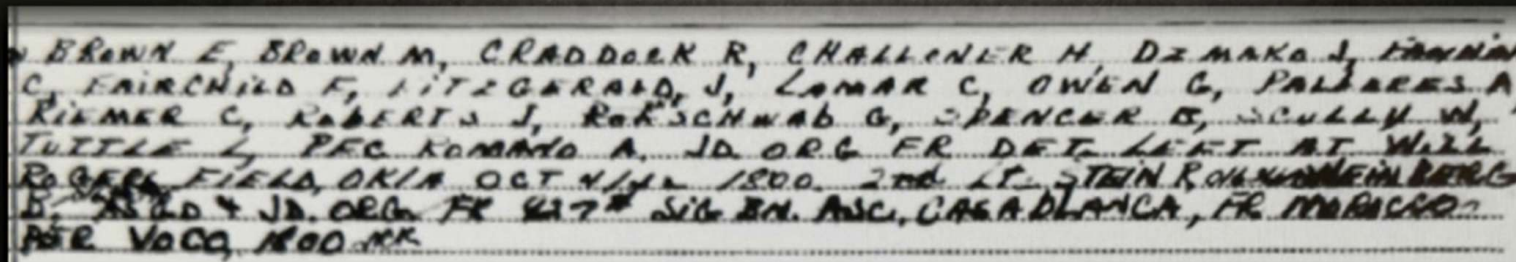 BROWN E, BROWN M, CRADDOCK R, CHALLONER H, DIMAKO J, FANNIN
C, FAIRCHILD F, FITZGERALD, J, LAMAR C, OWEN G, PALLARES A
RIEMER C, ROBERTS J, RORSCHWAB G, SPENCER B, SCULLY W,
TUTTLE L, PFC ROMANO A. JD ORG FR DET LEFT AT WILL
ROGERS FIELD, OKLA OCT 4/42 1800. 2nd LT STEIN R,
D. ASGD & JD. ORG FR 827th SIG BN. ASC, CASABLANCA, FR MOROCCO
PER VOCO, 1800